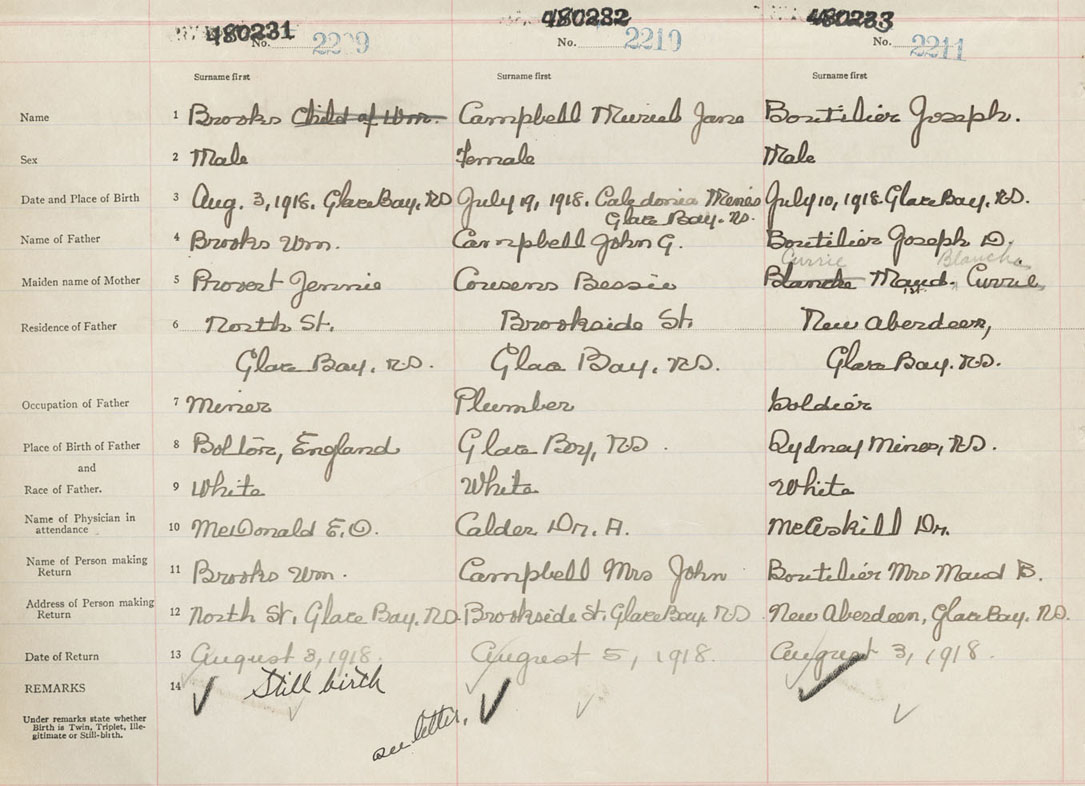 480231 480232 480233
No. 2209 No. 2210 No. 2211
Surname first Surname first Surname first
Name 1 Brooks Child of Wm. Campbell Muriel Jane Boutilier Joseph.
Sex 2 Male Female Male
Date and Place of Birth 3 Aug. 3, 1918. Glace Bay. NS July 19, 1918. Caledonia Mines July 10, 1918. Glace Bay. NS.
Glace Bay. NS.
Name of Father 4 Brooks Wm. Campbell John G. Boutilier Joseph D.
Currie Blanche
Maiden name of Mother 5 Provert Jennie Cousens Bessie Blanche Maud. Currie
Residence of Father 6 North St. Brookside St. New Aberdeen,
Glace Bay. NS. Glace Bay. NS. Glace Bay. NS.
Occupation of Father 7 Miner Plumber Soldier
Place of Birth of Father 8 Bolton, England Glace Bay, NS. Sydney Mines, NS.
and
Race of Father. 9 White White White
Name of Physician in
attendance 10 McDonald E.O. Calder Dr. A. McAskill Dr.
Name of Person making
Return 11 Brooks Wm. Campbell Mrs John Boutilier Mrs Maud B.
Address of Person making
Return 12 North St, Glace Bay. NS. Brookside St. Glace Bay. NS New Aberdeen, Glace Bay. NS.
Date of Return 13 August 3, 1918. August 5, 1918. August 3, 1918.
REMARKS 14 Still birth
Under remarks state whether
Birth is Twin, Triplet, Ille-
gitimate or Still-birth.
see letter.